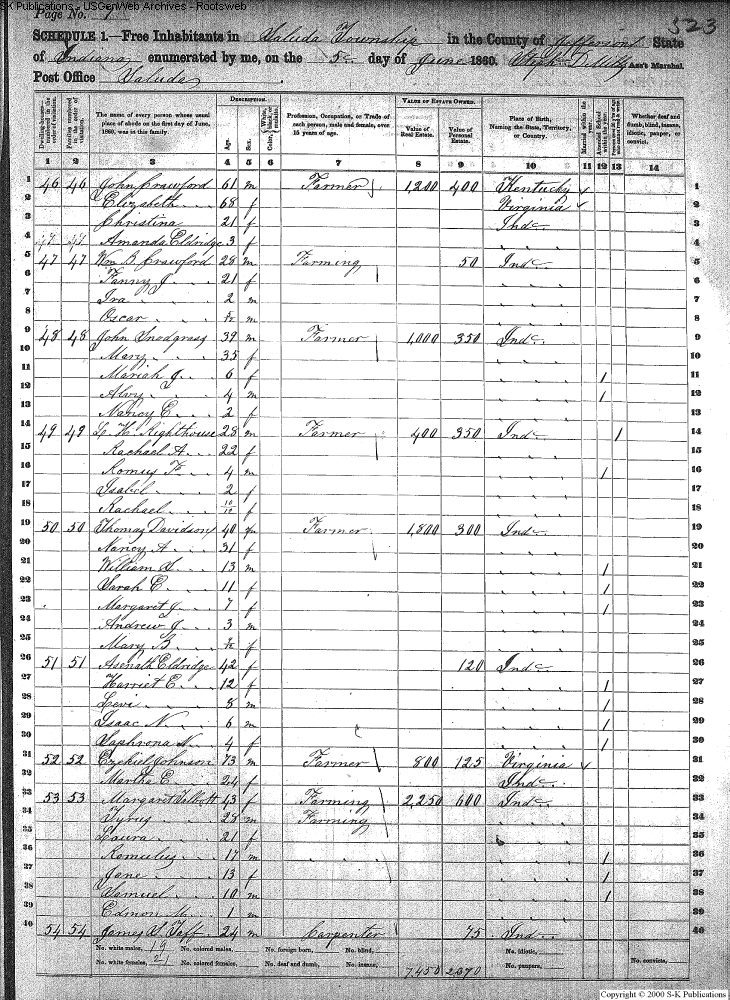 S-K Publications - USGenWeb Archives - Rootsweb
Page No. 7
523
SCHEDULE 1.—Free Inhabitants in Saluda Township in the County of Jefferson State
of Indiana enumerated by me, on the 5th day of June 1860. Ass't Marshal.
Post Office Saluda
DESCRIPTION. VALUE OF ESTATE OWNED.
Dwelling-houses—numbered in the order of visitation. Families numbered in the order of visitation. The name of every person whose usual place of abode on the first day of June, 1860, was in this family. Age. Sex. Color, White, black, or mulatto. Profession, Occupation, or Trade of each person, male and female, over 15 years of age. Value of Real Estate. Value of Personal Estate. Place of Birth, Naming the State, Territory, or Country. Married within the year. Attended School within the year. Whether deaf and dumb, blind, insane, idiotic, pauper, or convict.
1 2 3 4 5 6 7 8 9 10 11 12 13 14
1 46 46 John Crawford 61 m Farmer 1,200 400 Kentucky 1
2 Elizabeth 68 f Virginia 2
3 Christina 21 f Ind. 3
4 47 47 Amanda Eldridge 3 f 4
5 47 47 Wm B Crawford 28 m Farming 50 Ind. 5
6 Fanny J 21 f 6
7 Ira 2 m 7
8 Oscar m 8
9 48 48 John Snodgrass 39 m Farmer 1,000 350 Ind. 9
10 Mary 35 f 10
11 Mariah J. 6 f / 11
12 Alvy 4 m / 12
13 Nancy E 2 f 13
14 49 49 L. H. Righthouse 28 m Farmer 400 350 Ind. / 14
15 Rachael A. 22 f 15
16 Romus F. 4 m / 16
17 Isabel 2 f 17
18 Rachael 10/12 f 18
19 50 50 Thomas Davidson 40 m Farmer 1,800 300 Ind. 19
20 Nancy A. 31 f 20
21 William S. 13 m / 21
22 Sarah E. 11 f / 22
23 Margaret J. 7 f / 23
24 Andrew J. 3 m 24
25 Mary B. f 25
26 51 51 Asenath Eldridge 42 f 120 Ind. 26
27 Harriet E. 12 f / 27
28 Levi 8 m / 28
29 Isaac N. 6 m / 29
30 Saphrona N. 4 f / 30
31 52 52 Ezekiel Johnson 73 m Farmer 800 125 Virginia 31
32 Martha E. 24 f Ind. 32
33 53 53 Margaret Talbott 43 f Farming 2,250 600 Ind. 33
34 Tyrus 28 m Farming 34
35 Laura 21 f 35
36 Romulus 17 m / 36
37 Jane 13 f / 37
38 Samuel 10 m / 38
39 Edmon M. 1 m 39
40 54 54 James S. Taff 24 m Carpenter 75 Ind. 40
No. white males, 19 No. colored males, No. foreign born, No. blind, No. idiotic,
No. white females, 21 No. colored females, No. deaf and dumb, No. insane, 7,450 2,370 No. paupers, No. convicts,
Copyright © 2000 S-K Publications